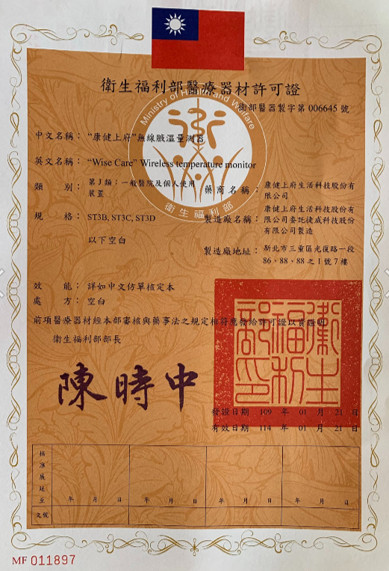 衛生福利部醫療器材許可證
Ministry of Health and Welfare
衛生福利部
衛部醫器製字第 006645 號
中文名稱：“康健上府”無線腋溫量測器
英文名稱：“Wise Care” Wireless temperature monitor
類　別：第J類：一般醫院及個人使用裝置
藥商名稱：康健上府生活科技股份有限公司
規　格：ST3B, ST3C, ST3D
以下空白
製造廠名稱：康健上府生活科技股份有限公司委託捷威科技股份有限公司製造
製造廠地址：新北市三重區光復路一段86、88、88之1號7樓
效　能：詳如中文仿單核定本
處　方：空白
前項醫療器材經本部審核與藥事法之規定相符應發給許可證以資證明
衛生福利部部長
陳時中
衛生福利部印
發證日期 109 年 01 月 21 日
有效日期 114 年 01 月 21 日
年　月　日　年　月　日　年　月　日　年　月　日
文號
MF 011897